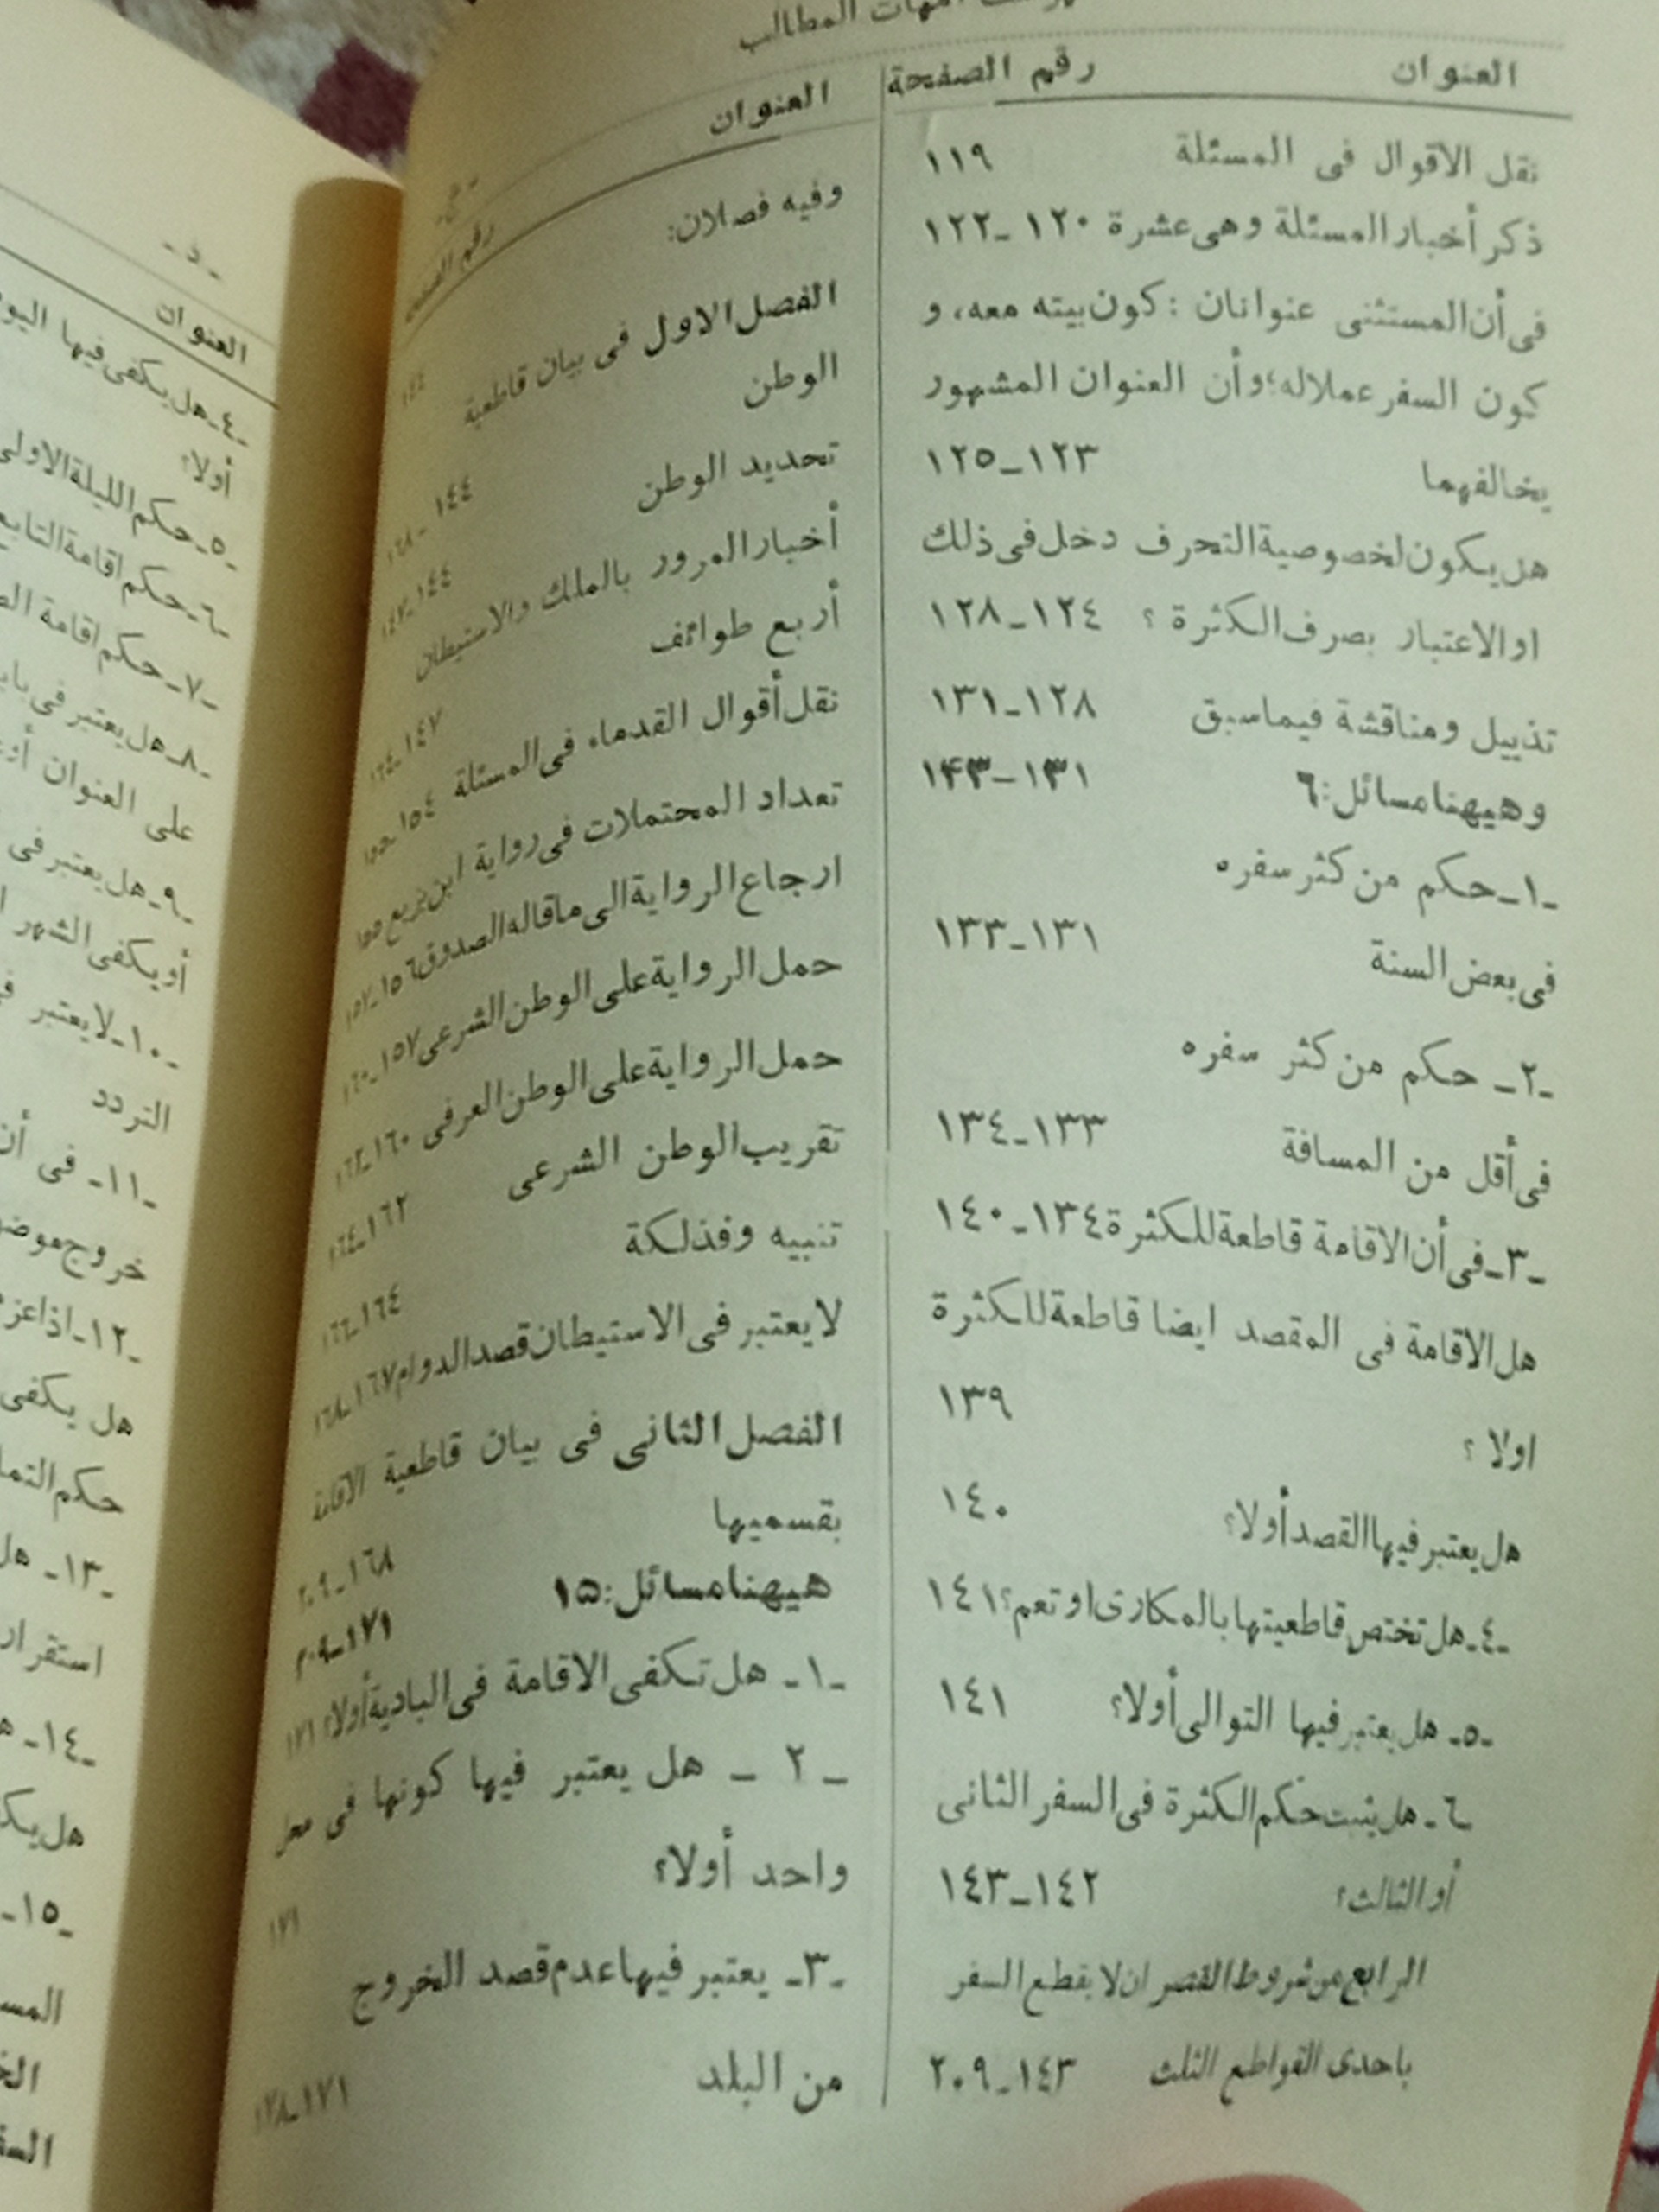 المطالب
العنوان
رقم الصفحة
نقل الاقوال فى المسئلة ١١٩
ذكر أخبار المسئلة وهى عشرة ١٢٠ـ١٢٢
فى أن المستثنى عنوانان : كون بيته معه، و
كون السفر عملا له؛ وأن العنوان المشهور
يخالفهما ١٢٣ـ١٢٥
هل يكون لخصوصية التحرف دخل فى ذلك
او الاعتبار بصرف الكثرة ؟ ١٢٤ـ١٢٨
تذييل ومناقشة فيما سبق ١٢٨ـ١٣١
وهيهنا مسائل:٦ ١٣١ـ١۴٣
ـ١ـ حكم من كثر سفره
فى بعض السنة ١٣١ـ١٣٣
ـ٢ـ حكم من كثر سفره
فى أقل من المسافة ١٣٣ـ١٣٤
ـ٣ـ فى أن الاقامة قاطعة للكثرة ١٣٤ـ١٤٠
هل الاقامة فى المقصد ايضا قاطعة للكثرة
اولا ؟ ١٣٩
هل يعتبر فيها القصد أولا؟ ١٤٠
ـ٤ـ هل تختص قاطعيتها بالمكارى او تعم؟ ١٤١
ـ٥ـ هل يعتبر فيها التوالى أولا؟ ١٤١
ـ٦ـ هل يثبت حكم الكثرة فى السفر الثانى
أو الثالث؟ ١٤٢ـ١٤٣
الرابع من شروط القصر ان لا يقطع السفر
باحدى القواطع الثلث ١٤٣ـ٢٠٩
العنوان
رقم الصفحة
وفيه فصلان:
الفصل الاول فى بيان قاطعية
الوطن ١٤٤ـ١٦٨
تحديد الوطن ١٤٤ـ١٤٧
أخبار المرور بالملك والاستيطان
أربع طوائف ١٤٧ـ١٥٤
نقل أقوال القدماء فى المسئلة ١٥٤ـ١٥٥
تعداد المحتملات فى رواية ابن بزيع ١٥٥
ارجاع الرواية الى ما قاله الصدوق ١٥٦ـ١٥٧
حمل الرواية على الوطن الشرعى ١٥٧ـ١٦٠
حمل الرواية على الوطن العرفى ١٦٠ـ١٦٢
تقريب الوطن الشرعى ١٦٢ـ١٦٤
تنبيه وفذلكة ١٦٤ـ١٦٦
لا يعتبر فى الاستيطان قصد الدوام ١٦٧ـ١٦٨
الفصل الثانى فى بيان قاطعية الاقامة
بقسميها ١٦٨ـ٢٠٩
هيهنا مسائل:١۵ ١٧١ـ٢٠٩
ـ١ـ هل تكفى الاقامة فى البادية أولا؟ ١٧١
ـ ٢ ـ هل يعتبر فيها كونها فى محل
واحد أولا؟ ١٧١
ـ٣ـ يعتبر فيها عدم قصد الخروج
من البلد ١٧١ـ١٧٨
ـ د ـ
العنوان
ـ٤ـ هل يكفى فيها
أولا؟
ـ٥ـ حكم الليلة الاولى
ـ٦ـ حكم اقامة التابع
ـ٧ـ حكم اقامة
ـ٨ـ هل يعتبر فى
على العنوان
ـ٩ـ هل يعتبر فى
أو يكفى الشهر
ـ١٠ـ لا يعتبر
التردد
ـ١١ـ فى أن
خروج
ـ١٢ـ اذا عزم
هل يكفى
حكم
ـ١٣ـ هل
استقرار
ـ١٤ـ
ـ١٥ـ